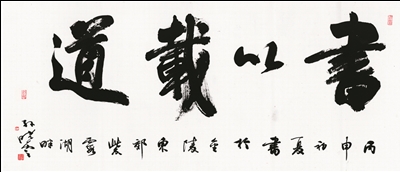 書以載道
丙申初夏書於金陵東郊紫霞湖畔
孙晓云